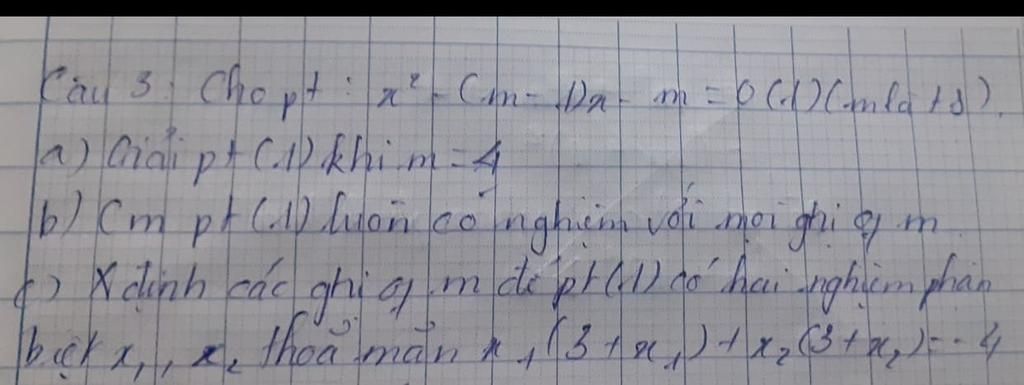 Câu 3: Cho pt: x² - (m - 1)x - m = 0 (1) (m là ts).
a) Giải pt (1) khi m = 4
b) Cm pt (1) luôn có nghiệm với mọi ghi of m
c) X định các ghi of m để pt (1) có hai nghiệm phân
biệt x₁, x₂ thoả mãn x₁(3 + x₁) + x₂(3 + x₂) = -4